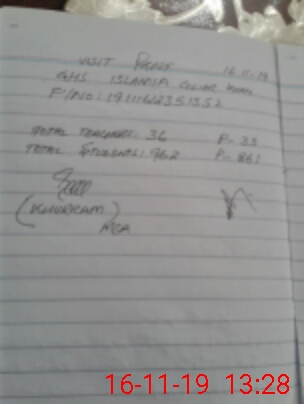 VISIT PROOF 16-11-19
GHS ISLAMIA
F/NO: 1911162351352
TOTAL TEACHERS: 36 P- 33
TOTAL STUDENTS: 962 P- 861
(KHURRAM)
MEA
16-11-19 13:28